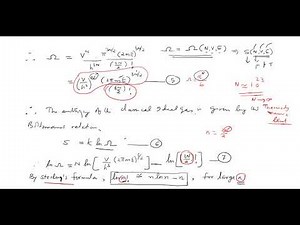 ∴ Ω = V^N/h^3N (2πmE)^3N/2 / (3N/2)! Ω = Ω(N,V,E) ⇒ S(N,V,E)
= (V/h³)^N (2πmE)^3N/2 / (3N/2)! — ⑤
∴ The entropy of the classical ideal gas is given by the
Boltzmann relation
S = k ln Ω — ⑥
ln Ω = N ln [V/h³ (2πmE)^3/2] − ln [(3N/2)!] — ⑦
By sterling's formula, ln(n!) ≈ n ln n − n, for large n